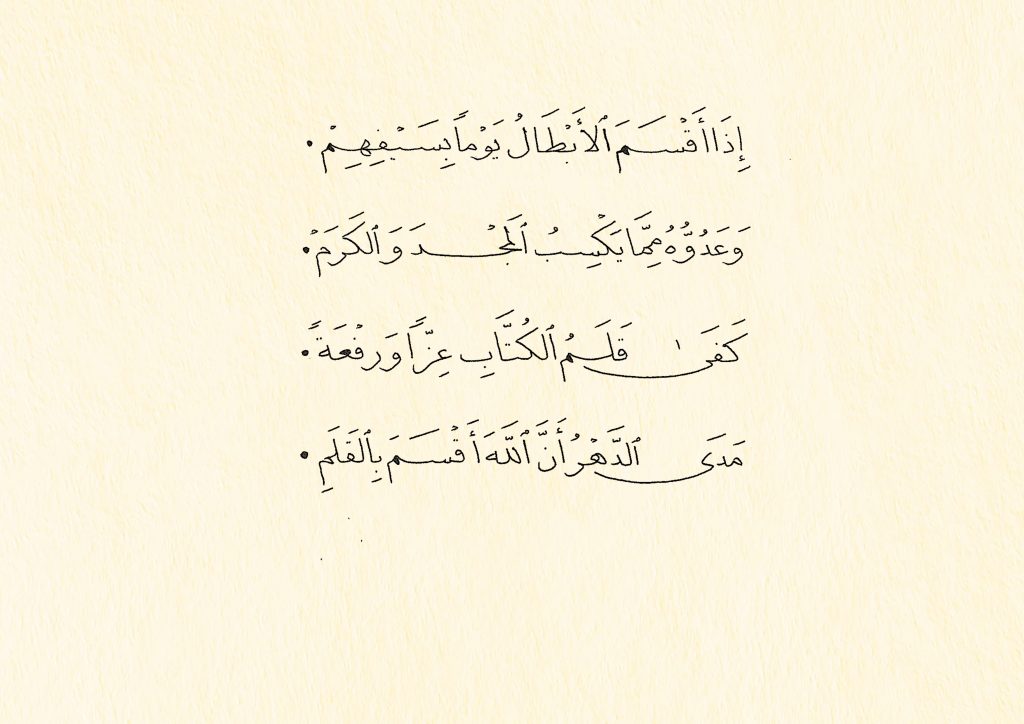 إِذَا أَقْسَمَ ٱلأَبْطَالُ يَوْماً بِسَيْفِهِمْ.
وَعَدُوُّهُ مِمَّا يَكْسِبُ ٱلَمجْدَ وَٱلكَرَمْ.
كَفَىٰ قَلَمُ ٱلكُتَّابِ عِزًّا وَرِفْعَةً.
مَدَى ٱلدَّهْرُ أَنَّ ٱللَّهَ أَقْسَمَ بِٱلقَلَمِ.